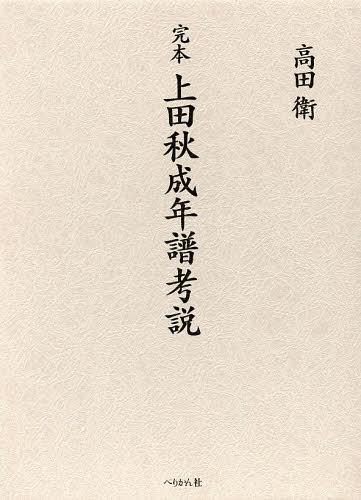 高田衛
完本 上田秋成年譜考説
ぺりかん社